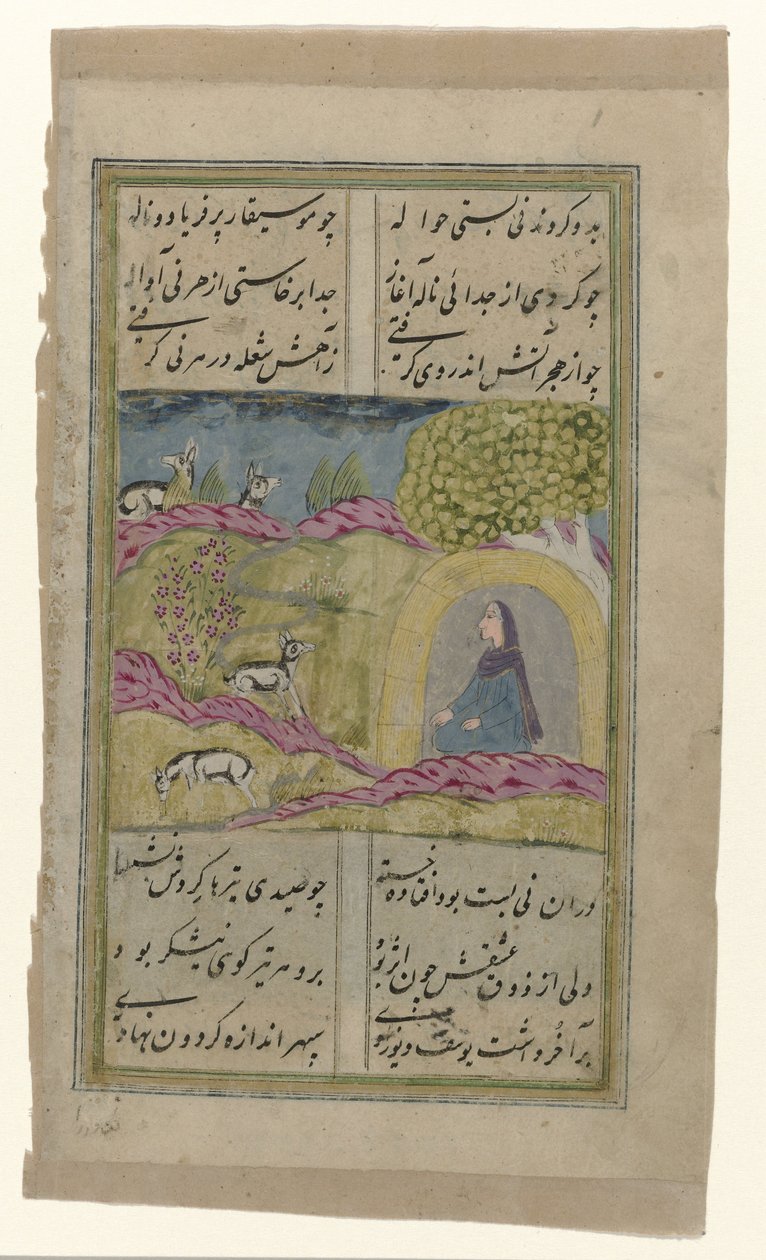 بدو کردند نی بستی حواله چو موسیقار پر فریاد و ناله
چو کردی از جدائی ناله آغاز جدا برخاستی از هر نی آواز
چو از هجر آتش اندر وی گرفتی ز آهش شعله در هر نی گرفتی
در ان نی بست بود افتاده خسته چو صیدی تیرها گردش نشسته
ولی از ذوق عشقش چون اثر بود برو هر تیر کوی نیشکر بود
بر آخُر داشت یوسف دیوزادی سپهر اندازه کردون نهادی